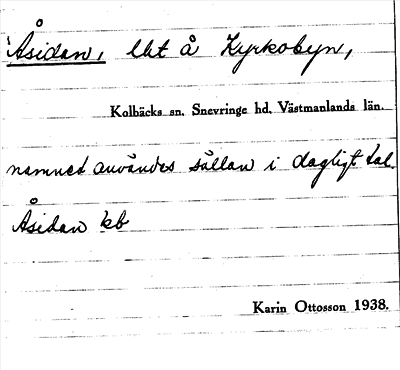 Åsidan, lht å Kyrkobyn,
Kolbäcks sn. Snevringe hd. Västmanlands län.
namnet användes sällan i dagligt tal.
Åsidan kb
Karin Ottosson 1938.